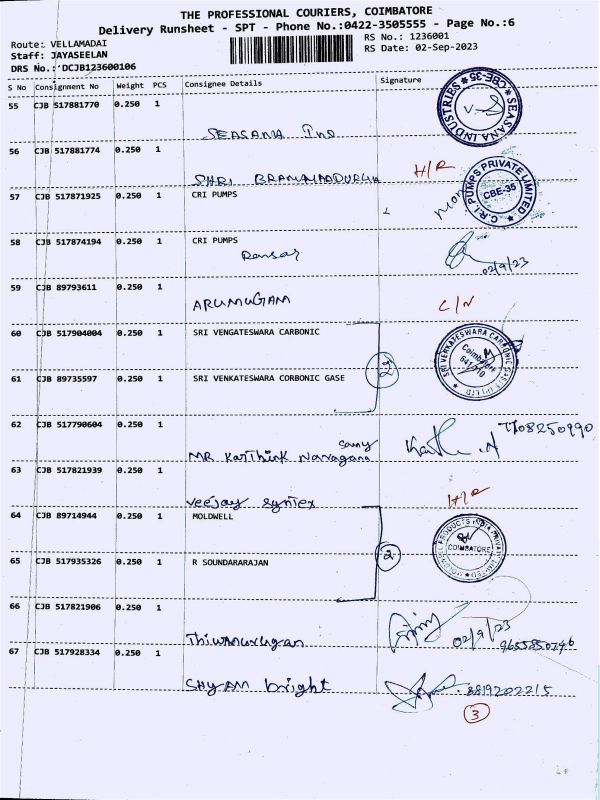 THE PROFESSIONAL COURIERS, COIMBATORE
Delivery Runsheet - SPT - Phone No.:0422-3505555 - Page No.:6
Route: VELLAMADAI
Staff: JAYASEELAN
DRS No.: DCJB123600106
RS No.: 1236001
RS Date: 02-Sep-2023
S No Consignment No Weight PCS Consignee Details Signature
55 CJB 517881770 0.250 1
SEASANA Ind
SEASANA INDUSTRIES CBE-35
56 CJB 517881774 0.250 1
SHRI
H/R
57 CJB 517871925 0.250 1 CRI PUMPS
C.R.I. PUMPS PRIVATE LIMITED CBE-35
58 CJB 517874194 0.250 1 CRI PUMPS
02/9/23
59 CJB 89793611 0.250 1
ARUMUGAM
C/N
60 CJB 517904004 0.250 1 SRI VENGATESWARA CARBONIC
2
SRI VENKATESWARA CARBONIC GAS (P) LTD Coimbatore 641 110
61 CJB 89735597 0.250 1 SRI VENKATESWARA CORBONIC GASE
62 CJB 517790604 0.250 1
MR Karthink Narayana Samy
7708250990
63 CJB 517821939 0.250 1
Veejay Syntex
H/R
64 CJB 89714944 0.250 1 MOLDWELL
2
MOLDWELL PRODUCTS INDIA PRIVATE LIMITED COIMBATORE
65 CJB 517935326 0.250 1 R SOUNDARARAJAN
66 CJB 517821906 0.250 1
02/9/23
67 CJB 517928334 0.250 1
SHYAM bright
3